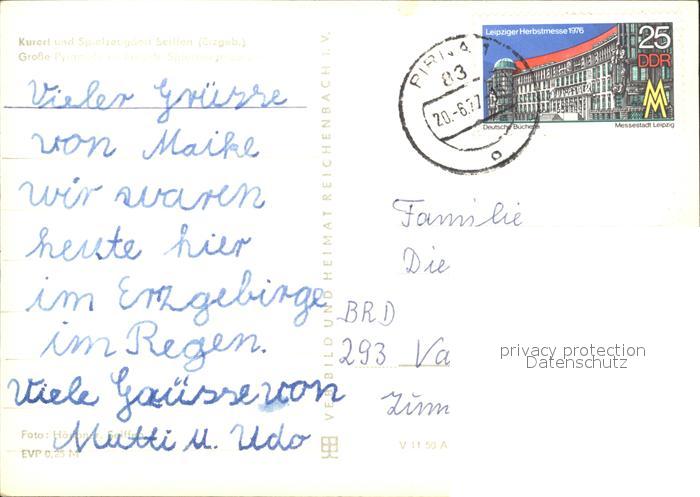 Kurort und Spielzeugdorf Seiffen (Erzgeb.)
Große Pyramide
Vieler Grüsse
von Maike
wir waren
heute hier
im Erzgebirge
im Regen.
Viele Gaüsse von
Mutti u. Udo
Foto:
EVP 0,25 M
VERLAG BILD UND HEIMAT REICHENBACH I. V.
V 11 50 A
Leipziger Herbstmesse 1976
25
DDR
MM
Deutsche Bücherei
Messestadt Leipzig
PIRNA 1
83
20.-6.77
Familie
Die
BRD
293 Va
Zimm
privacy protection
Datenschutz